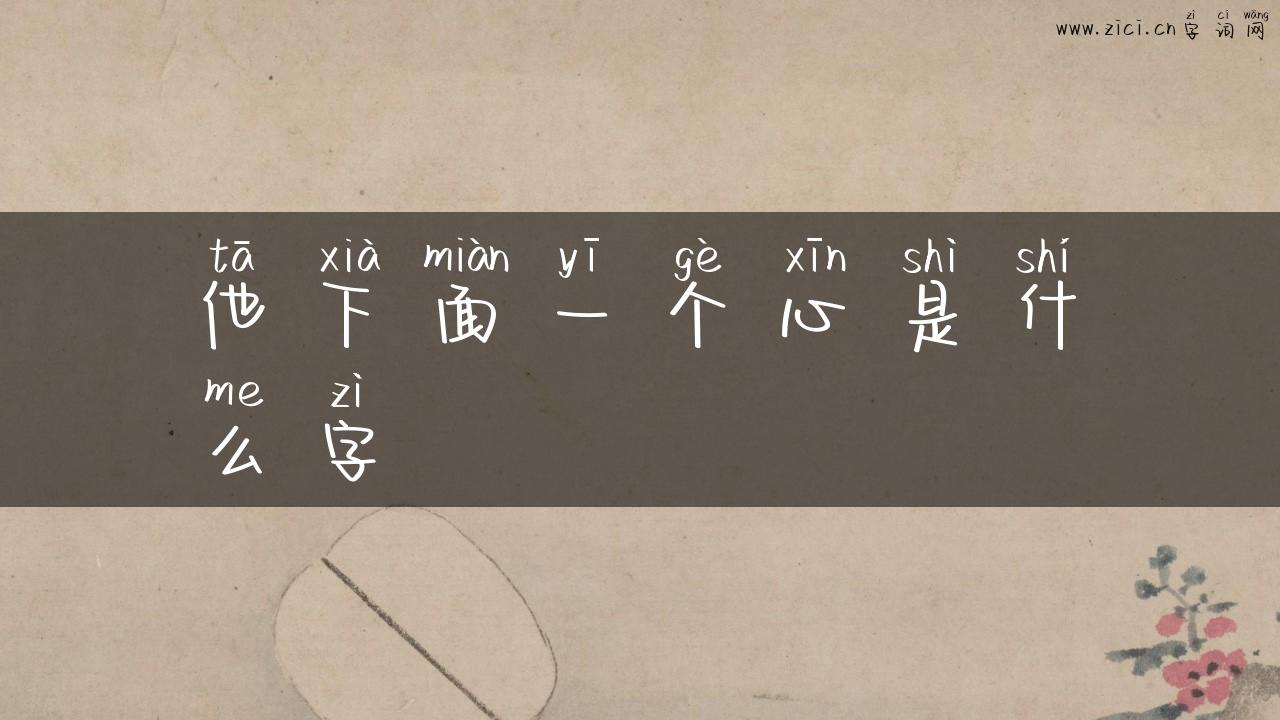 zì cí wǎng
www.zici.cn 字 词 网
tā xià miàn yī gè xīn shì shí
他 下 面 一 个 心 是 什
me zì
么 字